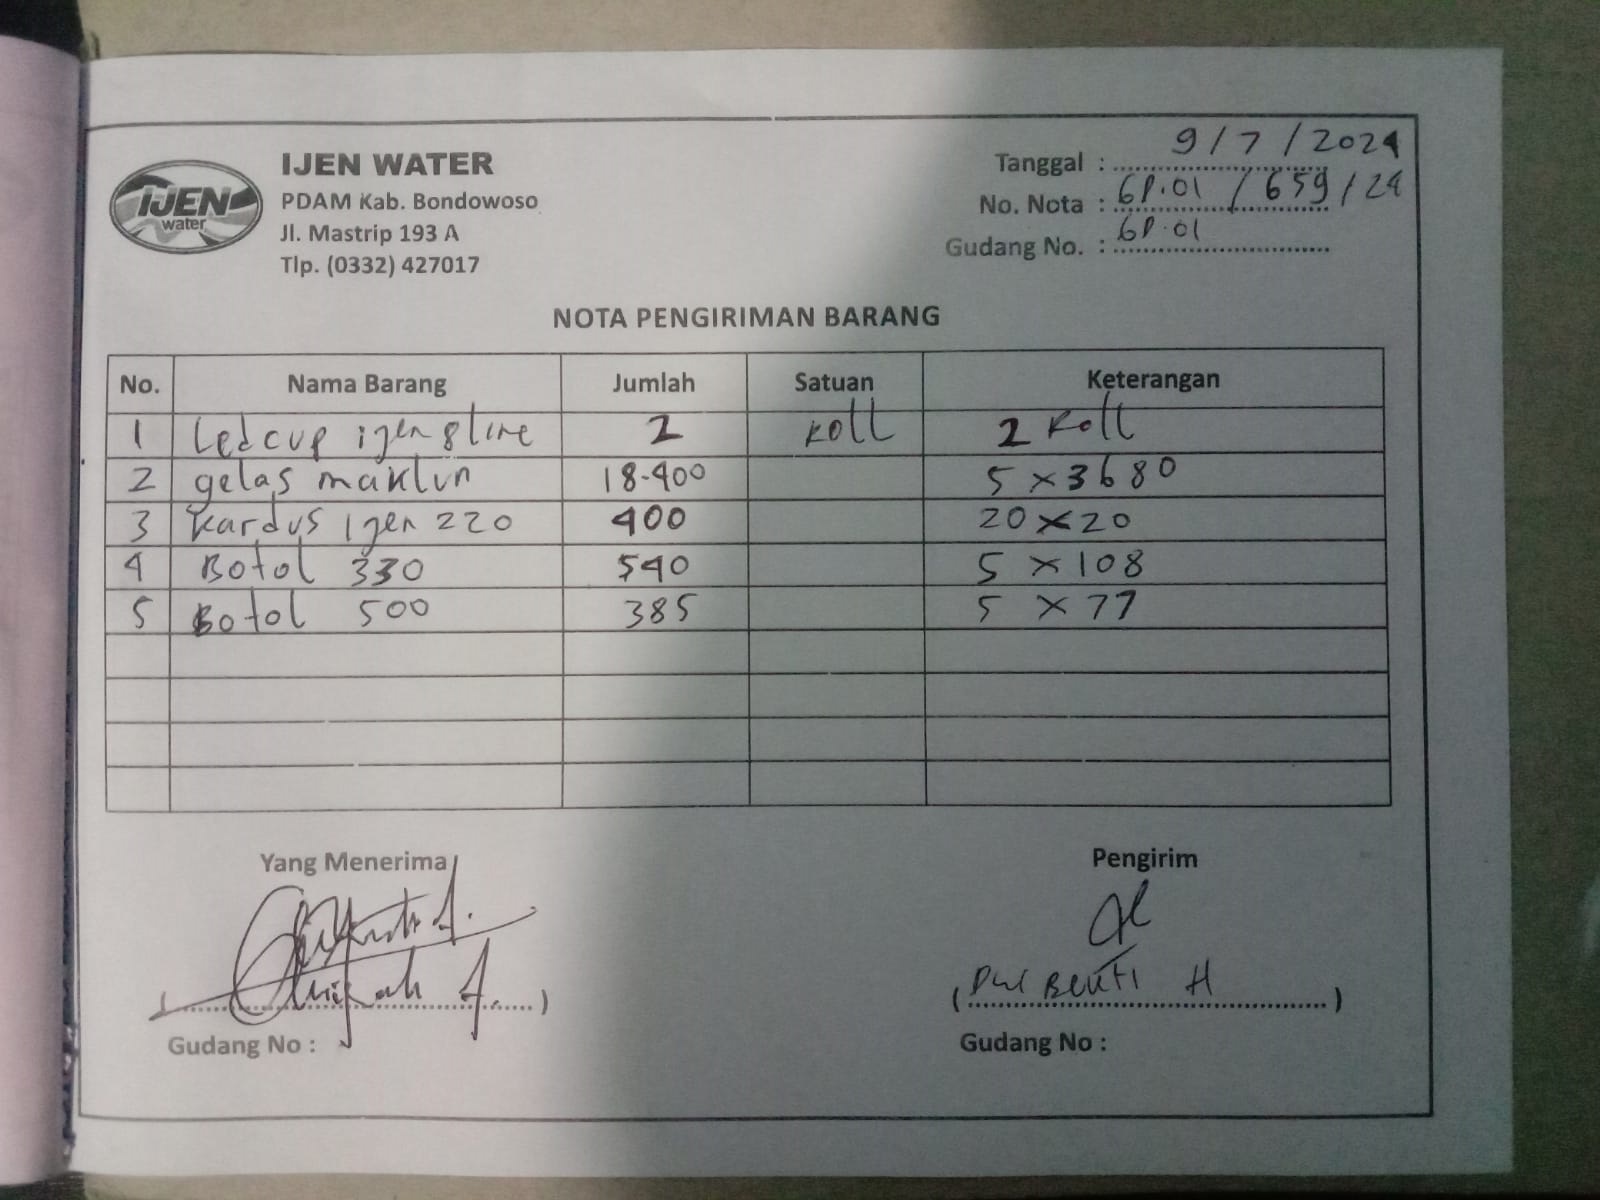 IJEN
water
IJEN WATER
PDAM Kab. Bondowoso
Jl. Mastrip 193 A
Tlp. (0332) 427017
Tanggal : 9/7/2024
No. Nota : GP.01 / 659/24
Gudang No. : GP.01
NOTA PENGIRIMAN BARANG
No. Nama Barang Jumlah Satuan Keterangan
1 Ledcup ijen 8 line 2 Roll 2 Roll
2 gelas maklun 18.400 5 x 3680
3 Kardus Ijen 220 400 20 x 20
4 Botol 330 540 5 x 108
5 Botol 500 385 5 x 77
Yang Menerima Pengirim
( A. ) ( H )
Gudang No : Gudang No :